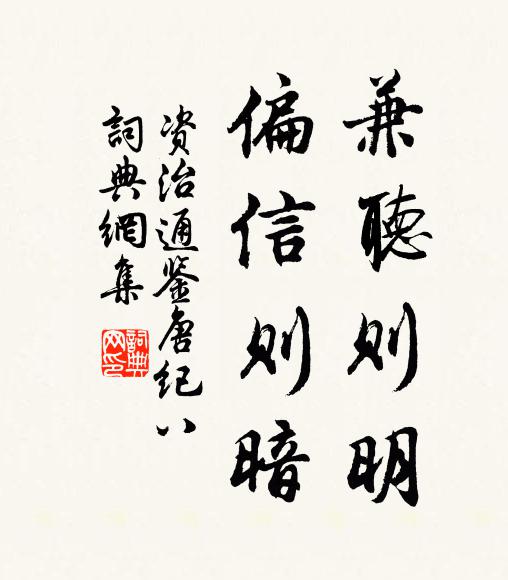 兼聽則明
偏信則暗
资治通鉴唐纪八
詞典網集
詞典网印